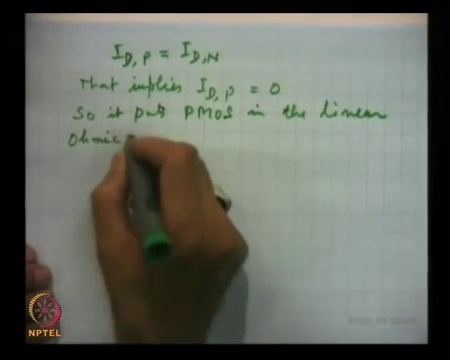 I_D,P = I_D,N
That implies I_D,P = 0
So it puts PMOS in the linear
Ohmic
NPTEL